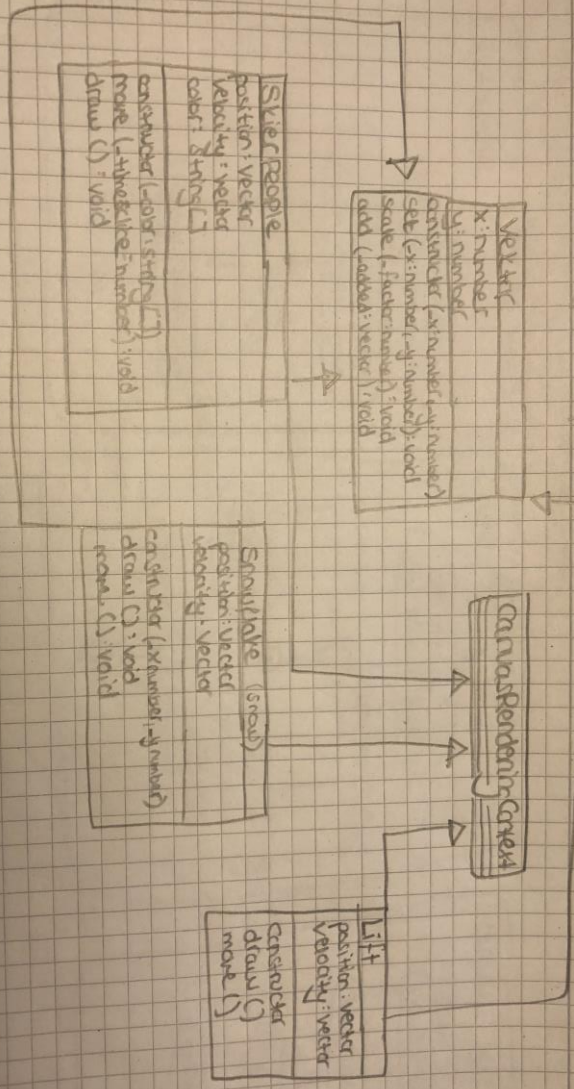 Vektor
x: number
y: number
constructor (_x: number, _y: number)
set (_x: number, _y: number): void
scale (_factor: number): void
add (_added: vector): void
CanvasRenderingContext
Skier People
position: vector
velocity: vector
color: string[]
constructor (_color: string[])
move (_timeslice: number): void
draw (): void
Snowflake (snow)
position: vector
velocity: vector
constructor (_x number, _y number)
draw (): void
move (): void
Lift
position: vector
velocity: vector
Constructor
draw ()
move ()